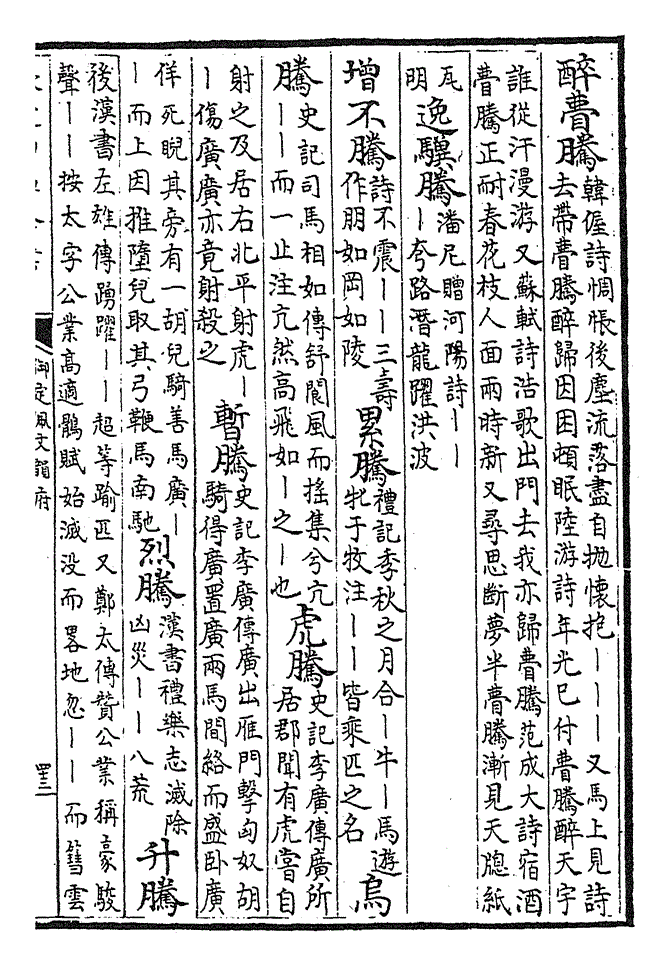 醉瞢騰韓偓詩惆悵後塵流落盡自抛懷抱———又馬上見詩
去帶瞢騰醉歸因困頓眠陸游詩年光已付瞢騰醉天字
誰從汗漫游又蘇軾詩浩歌出門去我亦歸瞢騰范成大詩宿酒
瞢騰正耐春花枝人面兩時新又尋思斷夢半瞢騰漸見天牕紙
瓦
明
逸驥騰潘尼贈河陽詩——
—夸路潛龍躍洪波
增不騰詩不震——三壽
作朋如岡如陵
累騰禮記季秋之月合—牛—馬遊
牝于牧注——皆乘匹之名
烏
騰史記司馬相如傳舒閬風而搖集兮亢
——而一止注亢然高飛如—之—也
虎騰史記李廣傳廣所
居郡聞有虎嘗自
射之及居右北平射虎—
—傷廣廣亦竟射殺之
暫騰史記李廣傳廣出雁門擊匈奴胡
騎得廣置廣兩馬間絡而盛卧廣
佯死睨其旁有一胡兒騎善馬廣—
—而上因推墮兒取其弓鞭馬南馳
烈騰漢書禮樂志滅除
凶災——八荒
升騰
後漢書左雄傳踴躍——超等踰匹又鄭太傳贊公業稱豪駿
聲——按太字公業高適鶻賦始滅没而畧地忽——而籋雲
御定佩文韻府